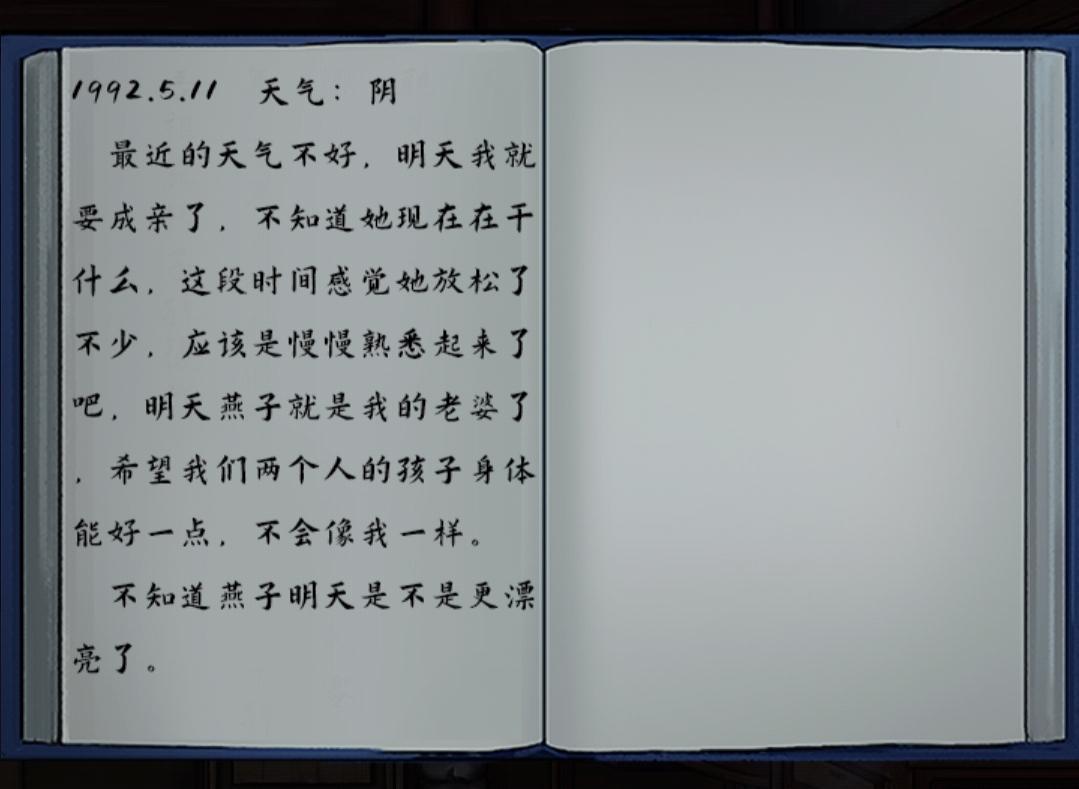 1992.5.11 天气：阴
最近的天气不好，明天我就
要成亲了，不知道她现在在干
什么，这段时间感觉她放松了
不少，应该是慢慢熟悉起来了
吧，明天燕子就是我的老婆了
，希望我们两个人的孩子身体
能好一点，不会像我一样。
不知道燕子明天是不是更漂
亮了。